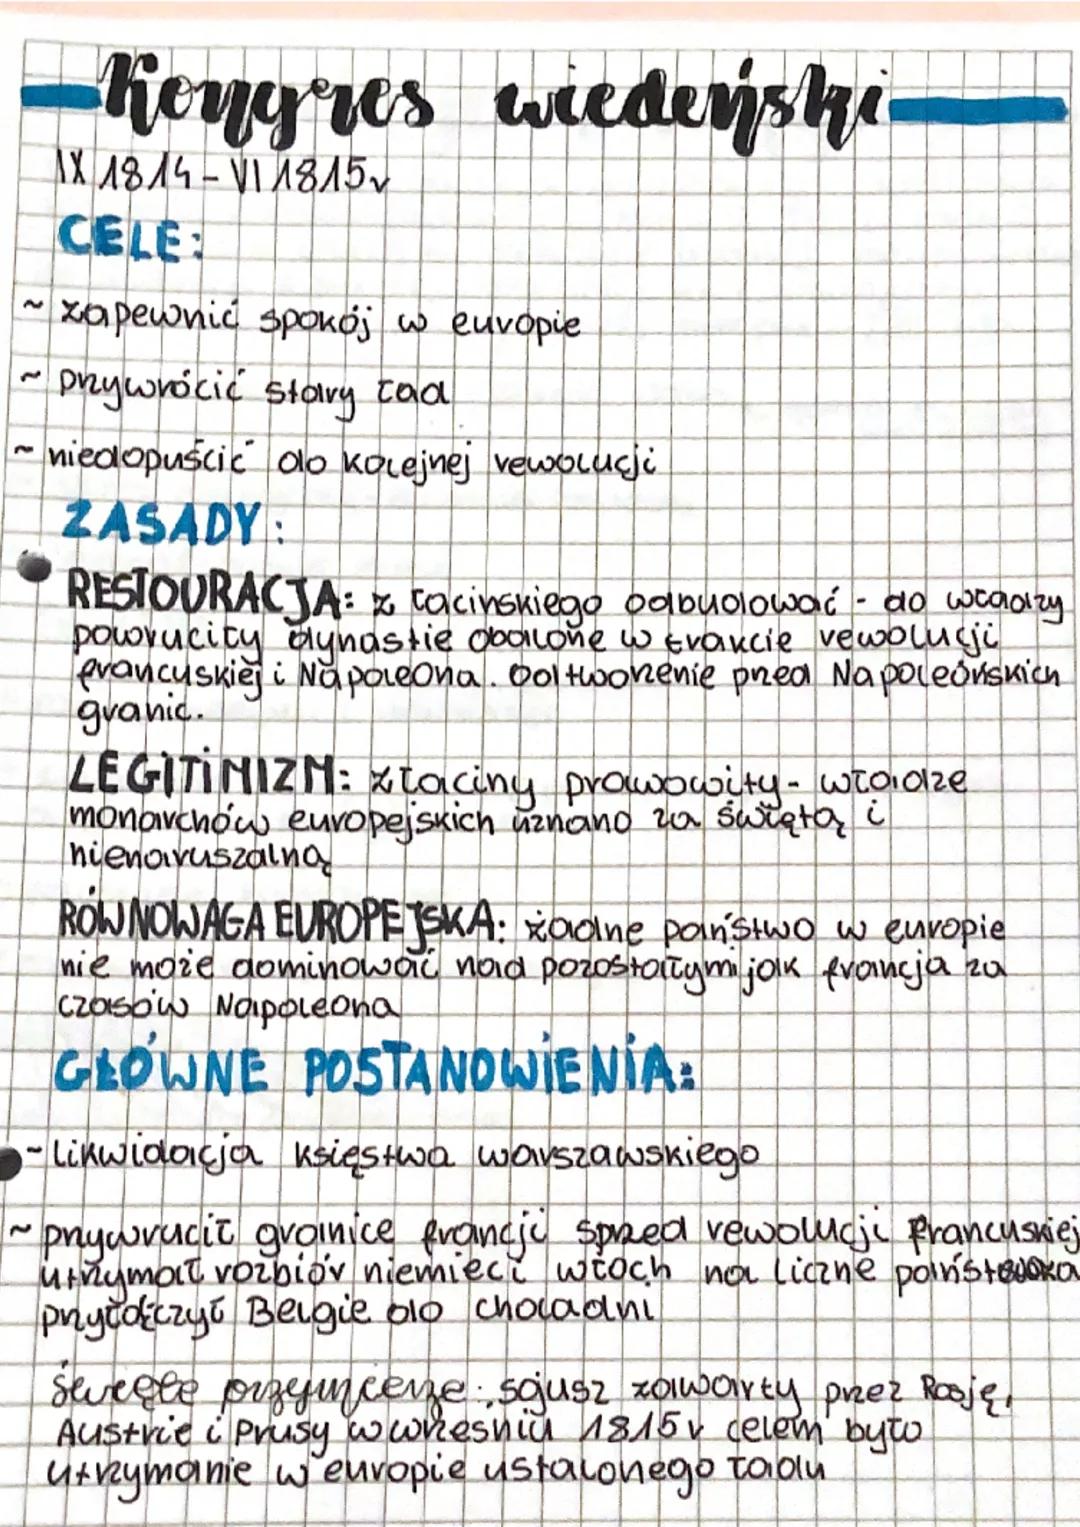 Kongres wiedeński
IX 1814 - VI 1815r
CELE:
~ zapewnić spokój w europie
~ przywrócić stary ład
~ niedopuścić do kolejnej rewolucji
ZASADY:
RESTOURACJA: z łacinskiego odbudować - do władzy
powruciły dynastie obalone w trakcie rewolucji
francuskiej i Napoleona. Odtworzenie przed Napoleońskich
granic.
LEGITIMIZM: z łaciny prawowity - władze
monarchów europejskich uznano za świętą i
nienaruszalną
RÓWNOWAGA EUROPEJSKA: żadne państwo w europie
nie może dominować nad pozostałymi jak francja za
czasów Napoleona
GŁÓWNE POSTANOWIENIA:
~ likwidacja księstwa warszawskiego
~ przywrucił granice francji sprzed rewolucji francuskiej
utrzymał rozbiór niemiec i włoch na liczne państewka
przyłączył Belgie do choladni
święte przymierze: sojusz zawarty przez Rosję,
Austrie i Prusy w wrześniu 1815r celem było
utrzymanie w europie ustalonego ładu